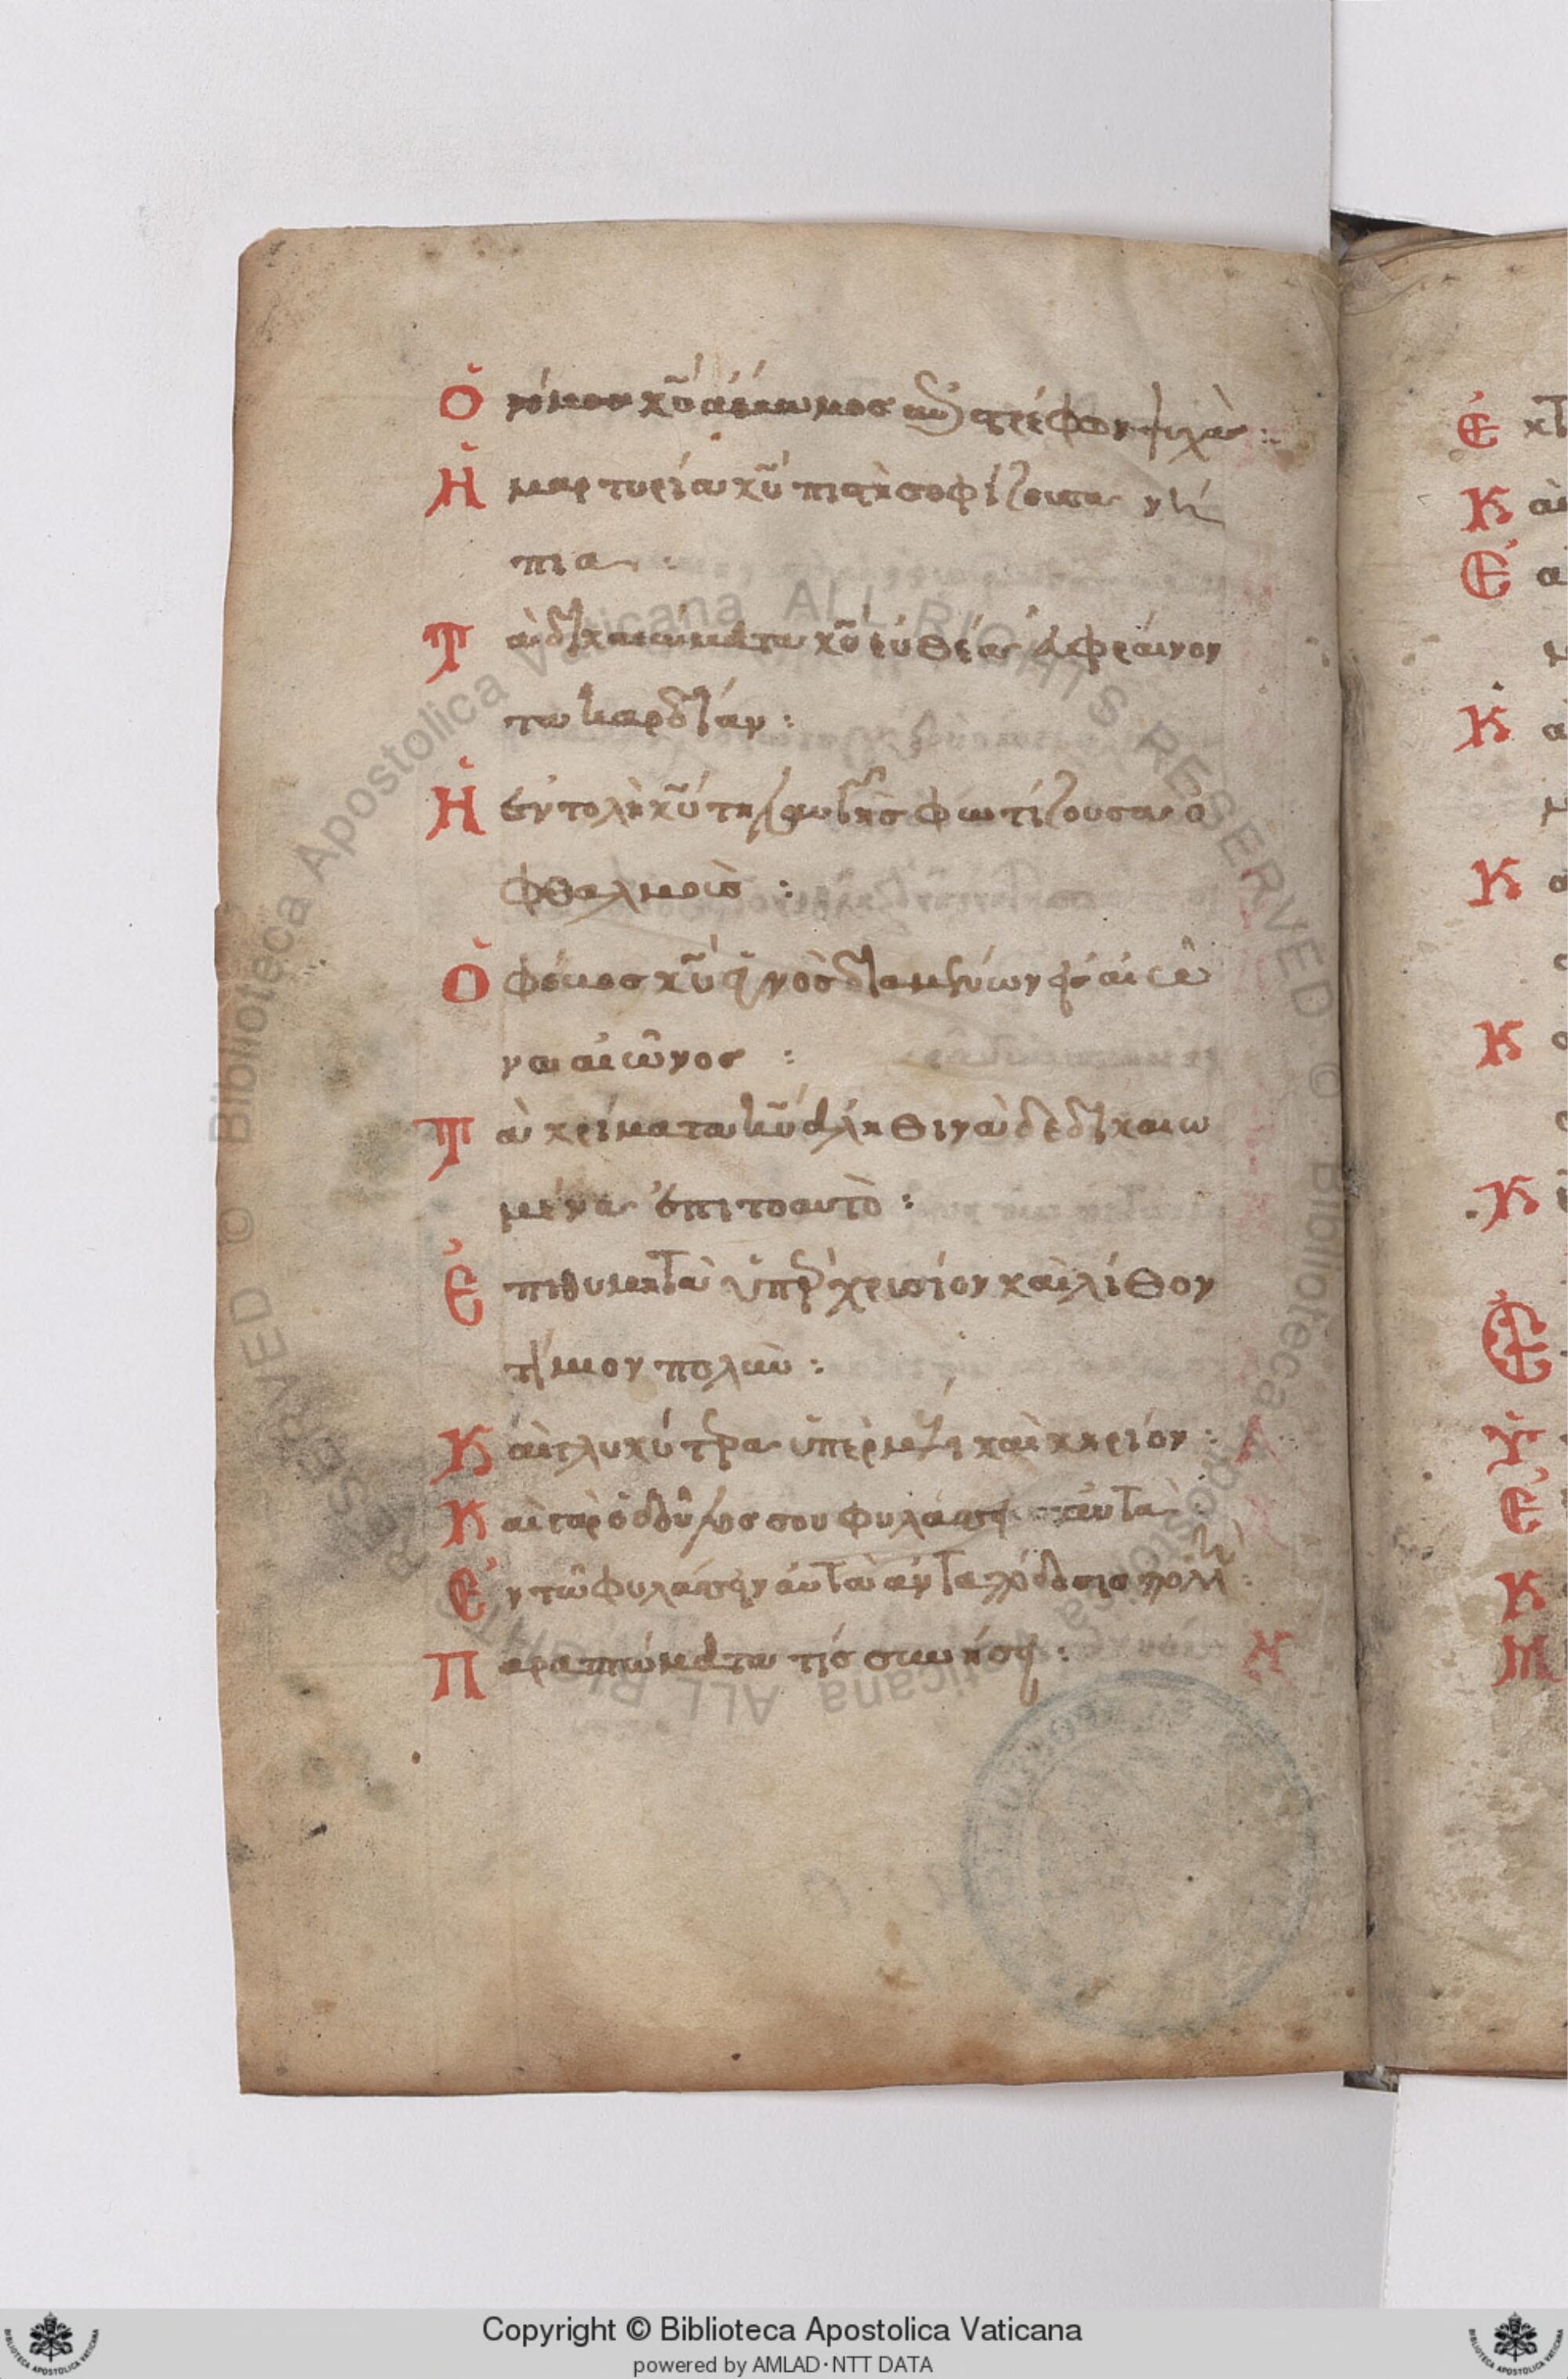 Ὁ νόμος κ̅υ̅ ἄμωμος ἐπιστρέφων ψυχὰς :
Ἡ μαρτυρία κ̅υ̅ πιστὴ σοφίζουσα νή
πια :
Τὰ δικαιώματα κ̅υ̅ εὐθέα εὐφραίνον
τα καρδίαν :
Ἡ ἐντολὴ κ̅υ̅ τηλαυγὴς φωτίζουσα ὀ
φθαλμοὺς :
Ὁ φόβος κ̅υ̅ ἁγνὸς διαμένων εἰς αἰῶ
να αἰῶνος :
Τὰ κρίματα κ̅υ̅ ἀληθινὰ δεδικαιω
μένα ἐπιτοαυτὸ :
Ἐπιθυμητὰ ὑπὲρ χρυσίον καὶ λίθον
τίμιον πολὺν :
Καὶ γλυκύτερα ὑπὲρ μέλι καὶ κηρίον :
Καὶ γὰρ ὁ δοῦλος σου φυλάσσει αὐτὰ :
Ἐν τῶ φυλάσσειν αὐτὰ ἀνταπόδοσις πολλή :
Παραπτώματα τίς συνήσει :
Copyright © Biblioteca Apostolica Vaticana
powered by AMLAD·NTT DATA